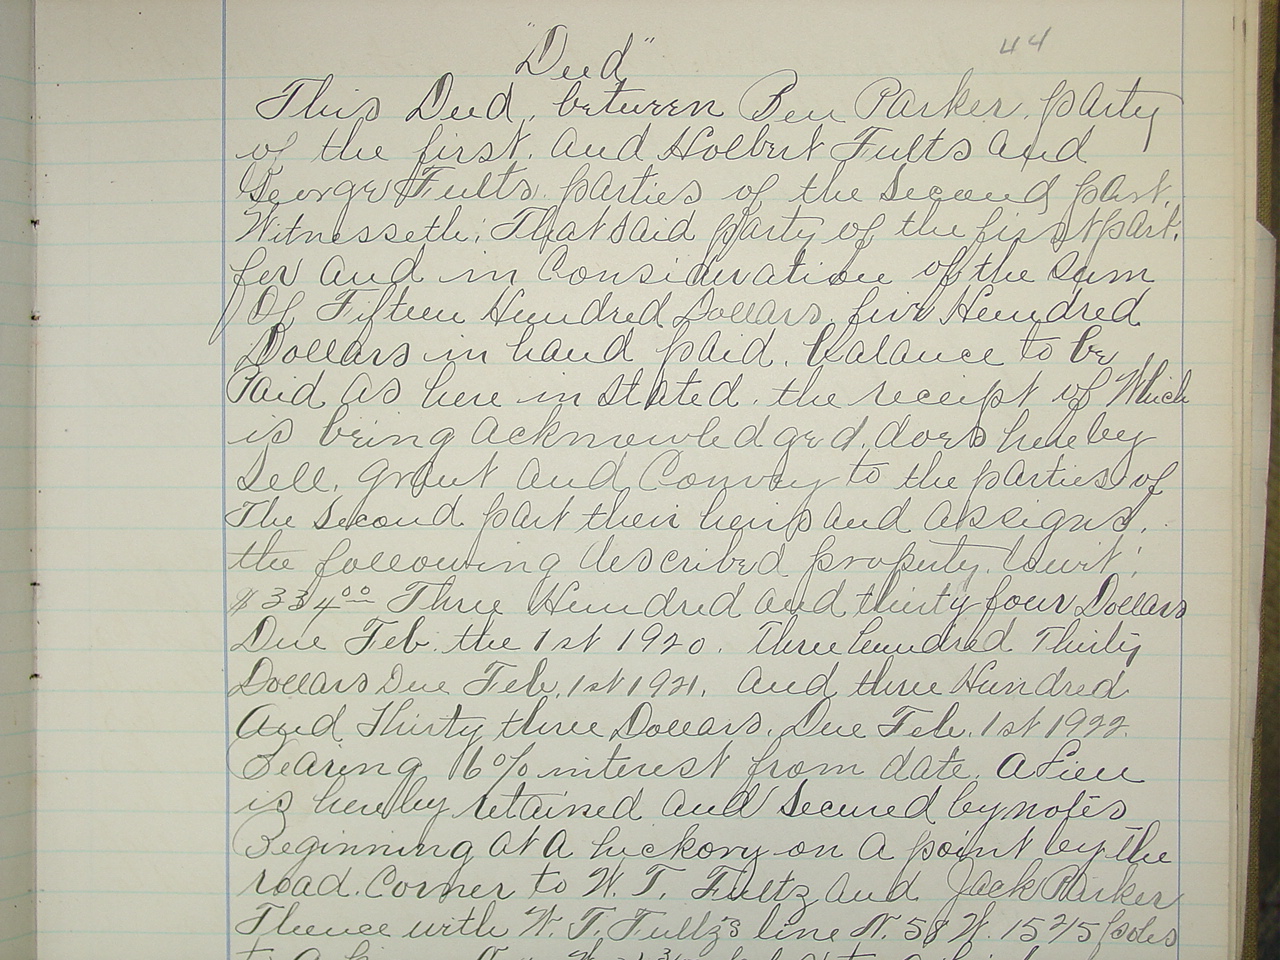 "Deed" 44
This Deed, between Ben Parker, party
of the first, and Holbert Fults and
George Fults parties of the second part.
Witnesseth; That said party of the first part.
for and in Consideration of the Sum
Of Fifteen Hundred Dollars. five Hundred
Dollars in hand paid. balance to be
Paid as here in stated. the receipt of Which
is being acknowledged, does hereby
Sell, grant and Convey to the parties of
The Second part their heirs and assigns,
the following described property. towit;
$334.00 Three Hundred and thirty four Dollars
Due Feb. the 1st 1920. Three hundred Thirty
Dollars Due Feb. 1st 1921. and three Hundred
And Thirty three Dollars. Due Feb. 1st 1922.
Bearing 6% interest from date. A Lien
is hereby retained and secured by notes
Beginning at A hickory on a point by the
road. Corner to W. T. Fultz and Jack Parker
Thence with W. T. Fultz's line N. 58 W. poles